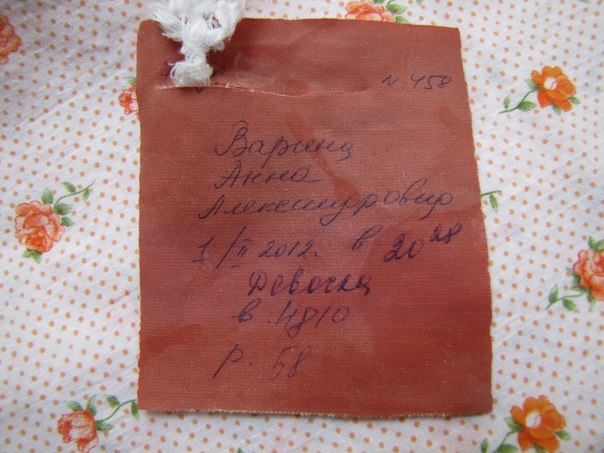 N. 458
Варинц
Анна
Александровна
1/II 2012. в 20 28
Девочка
в. 4810
р. 58